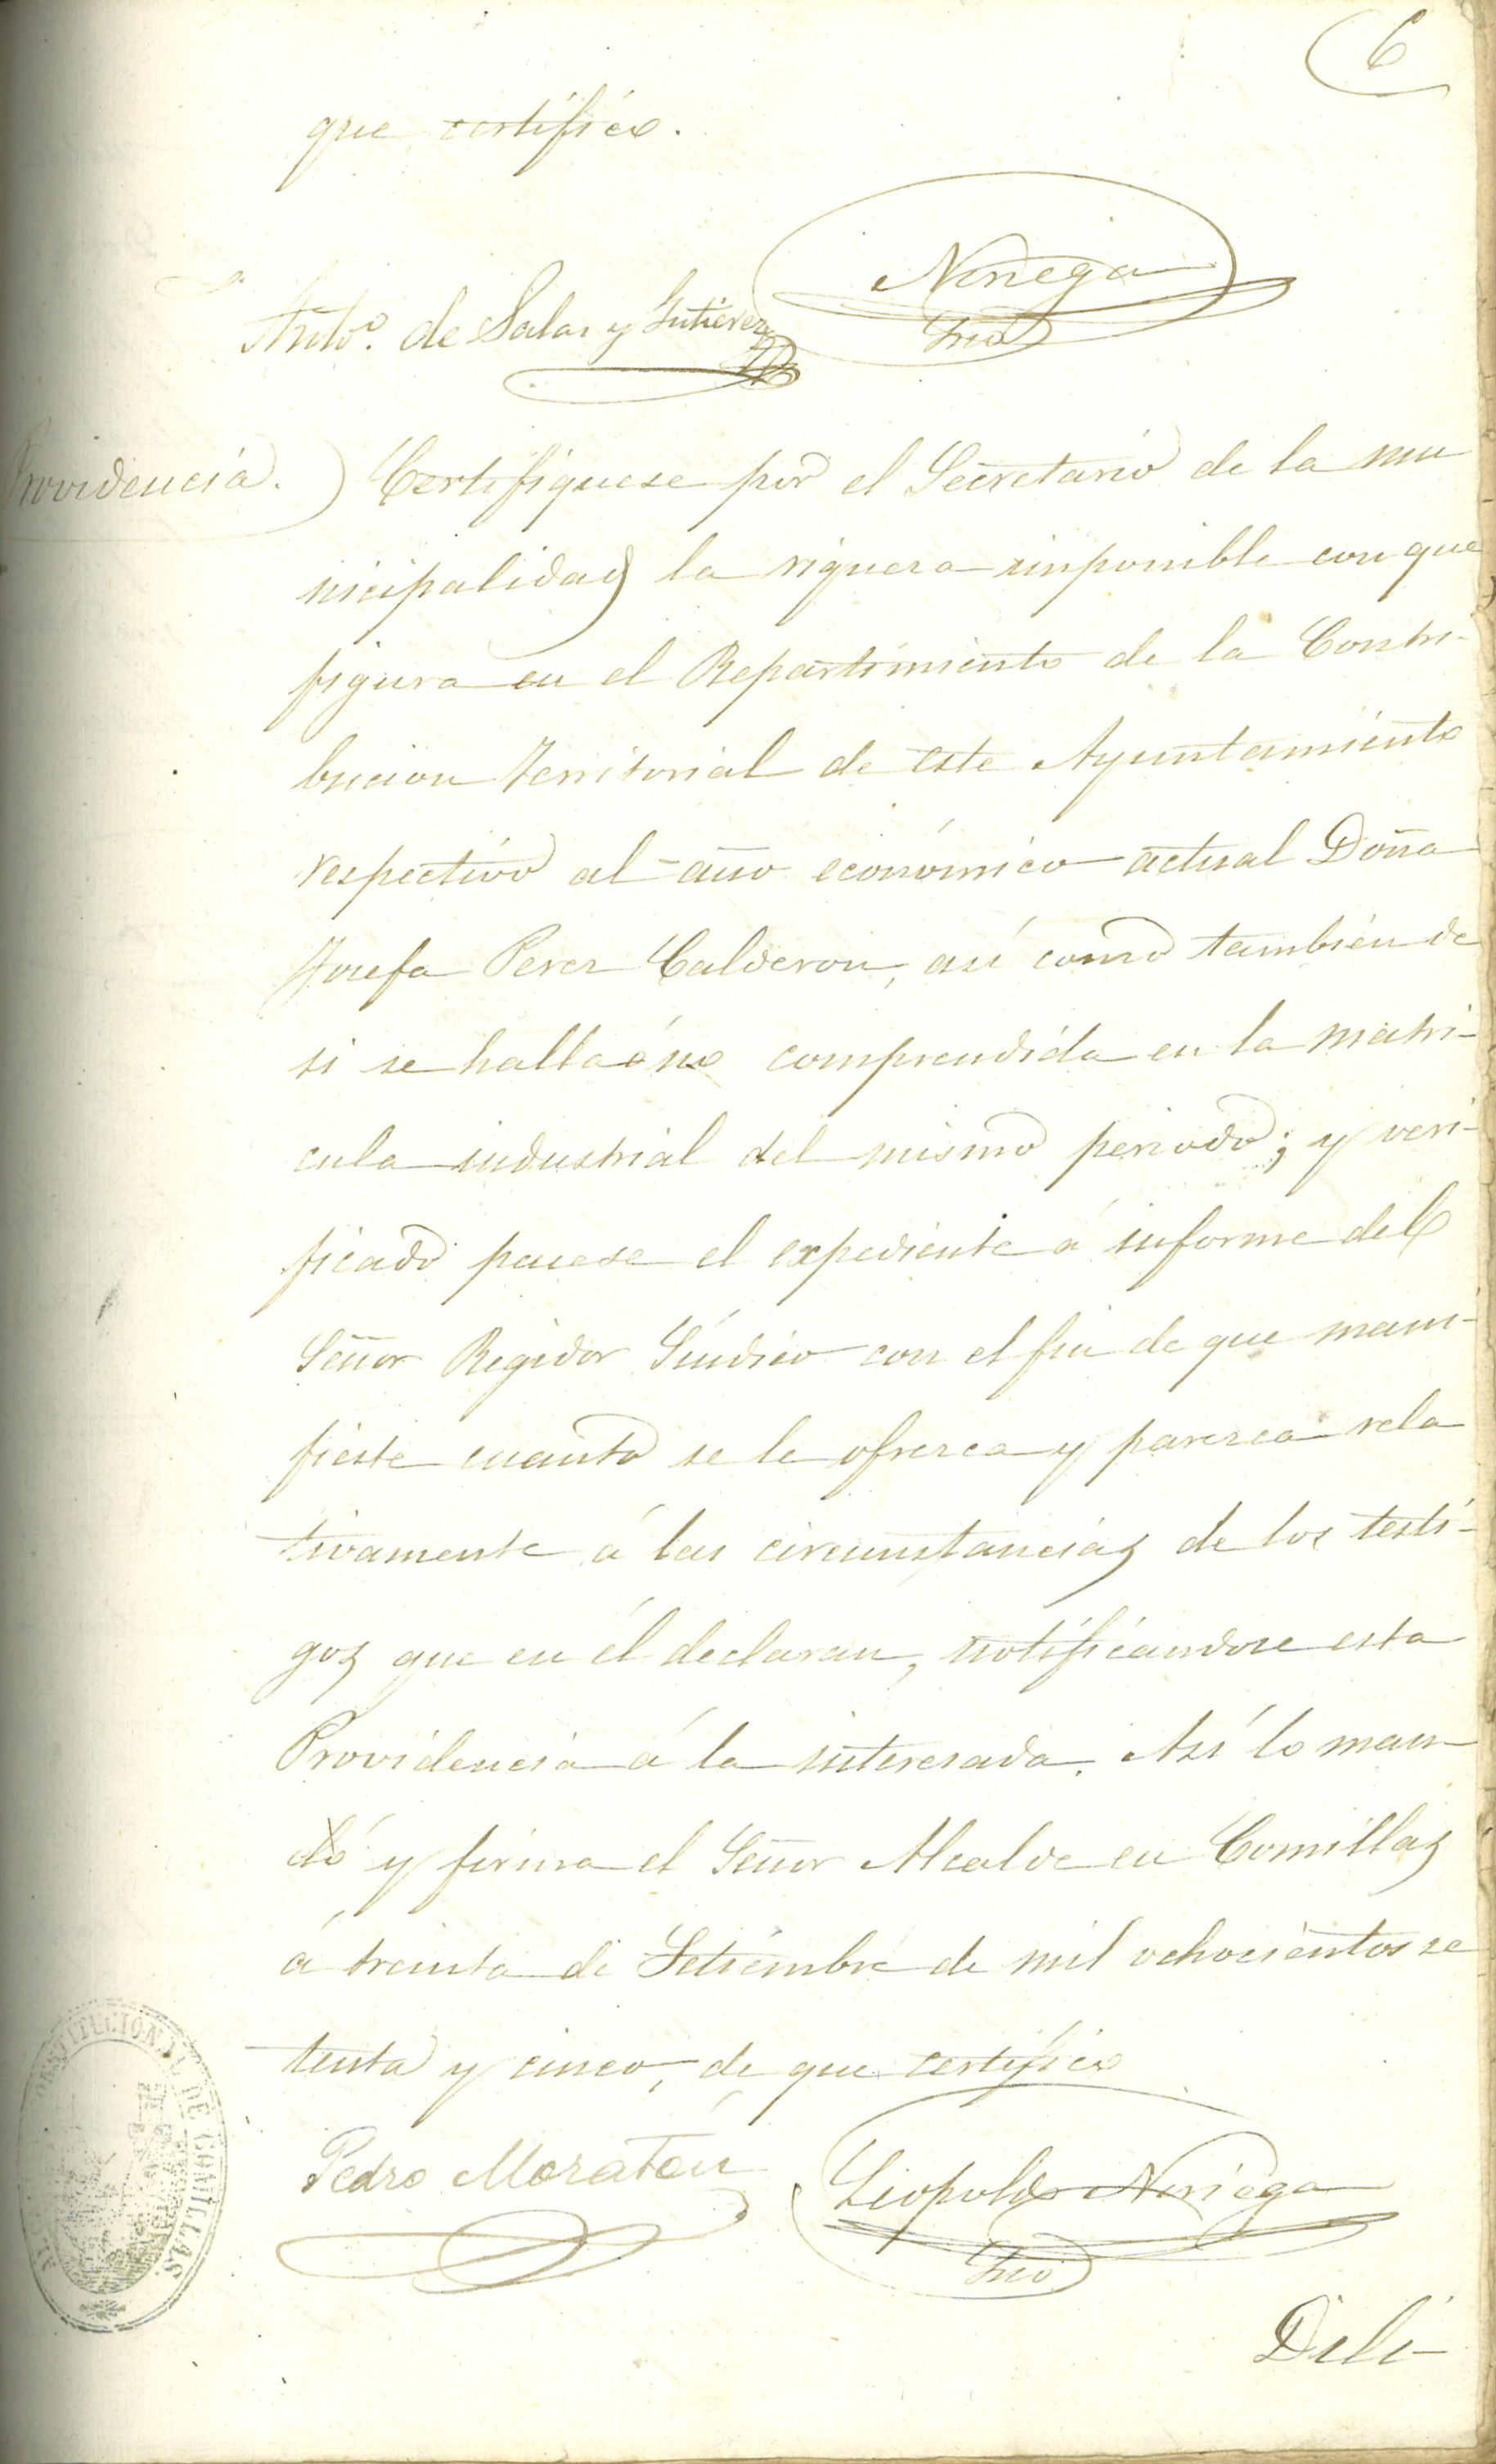 6
que certifico.
Noriega
Srio
Anto. de Salas y Gutierrez
Providencia.
Certifiquese por el Secretario de la mu
nicipalidad la riqueza imponible con que
figura en el Repartimiento de la Contri-
bucion Territorial de este Ayuntamiento
respectivo al año económico actual Doña
Josefa Perez Calderon, así como tambien de
si se halla ó no comprendida en la matri-
cula industrial del mismo periodo; y veri-
ficado pacese el expediente á informe del
Señor Regidor Síndico con el fin de que mani-
fieste cuanto se le ofrezca y parezca rela
tivamente á las circunstancias de los testi-
gos que en él declaran, notificandose esta
Providencia á la interesada. Así lo man
dó y firma el Señor Alcalde en Comillas
á treinta de Setiembre de mil ochocientos se
tenta y cinco, de que certifico
Pedro Moratón
Leopoldo Noriega
Srio
CONSTITUCIONAL DE COMILLAS
Dili-